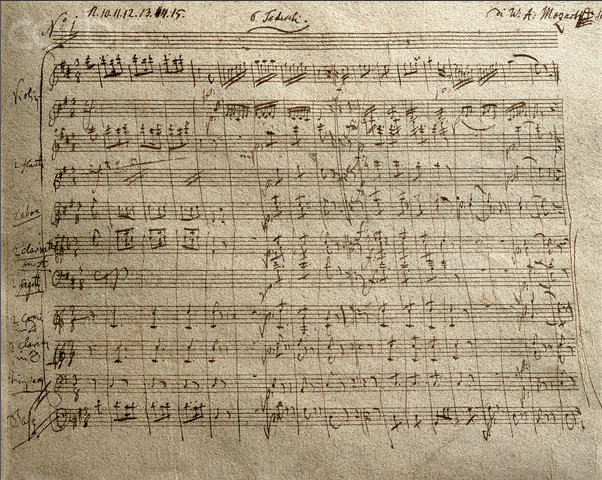 No. 1. 9. 10. 11. 12. 13. 14. 15. 6 Tedeschi di W. A. Mozart
Violini
2 flauti
2 oboe
2 clarinetti
in A
2 fagotti
2 Corni
2 clarini
in D
Bassi